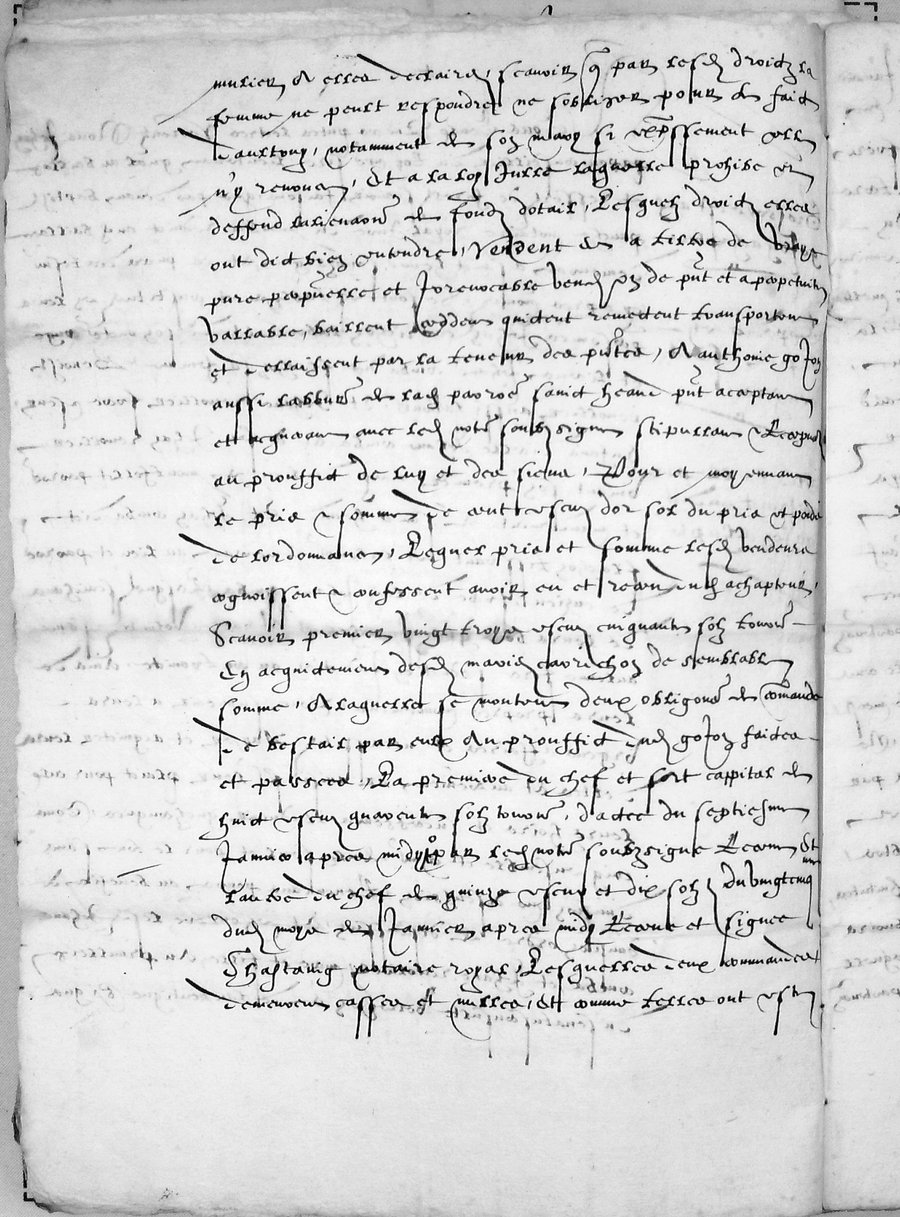 mulier A elles declairé, scavoir q par lesd droictz la
femme ne peult respondre ne sobliger pour le faict
daultruy, notamment de son mary si expssement elle
n'y renonce, Et a la loy Jullie laquelle prohibe et
deffend lalienaon de fondz dotail, Lesquelz droictz elles
ont dict bien entendre, Vendent et a tiltre de vraye
pure perpetuelle et Irrevocable vend de pnt et a perpetuite
vallable, baillent ceddent quictent remectent transportent
et dellaissent par la teneur des pntes, A anthonie goJon
aussi labbureur de lad parroe sainct pnt acceptant
et acquerant avec led notre soubzsigne stipullant Recepvant
au prouffict de luy et des siens, Pour et moyennant
le pris et somme de cent escuz dor sol du pris et poidz
de lordonnance, Lequel pris et somme lesd vendeurs
cognoissent et confessent avoir eu et receu dud achapteur,
Scavoir premier vingt troys escuz cinquante solz tournois
En acquictement desd mariez de semblable
somme, A laquelle se montent deux obligons de comande
de bestail par eulx Au prouffict dud goJon faictes
et passees, La premiere du chef et sort cappital de
huict escuz quarente solz tournois, dactee du septiesme
Janvier apres midy par led notre soubzsigne Receue Et
lautre du chef de quinze escuz et dix solz du vingtcinq
dud moys de Janvier apres midy Receue et signee
Chastanig notaire royal, Lesquelles deux commandes
demeurent cassees et nulles, Et comme telles ont este